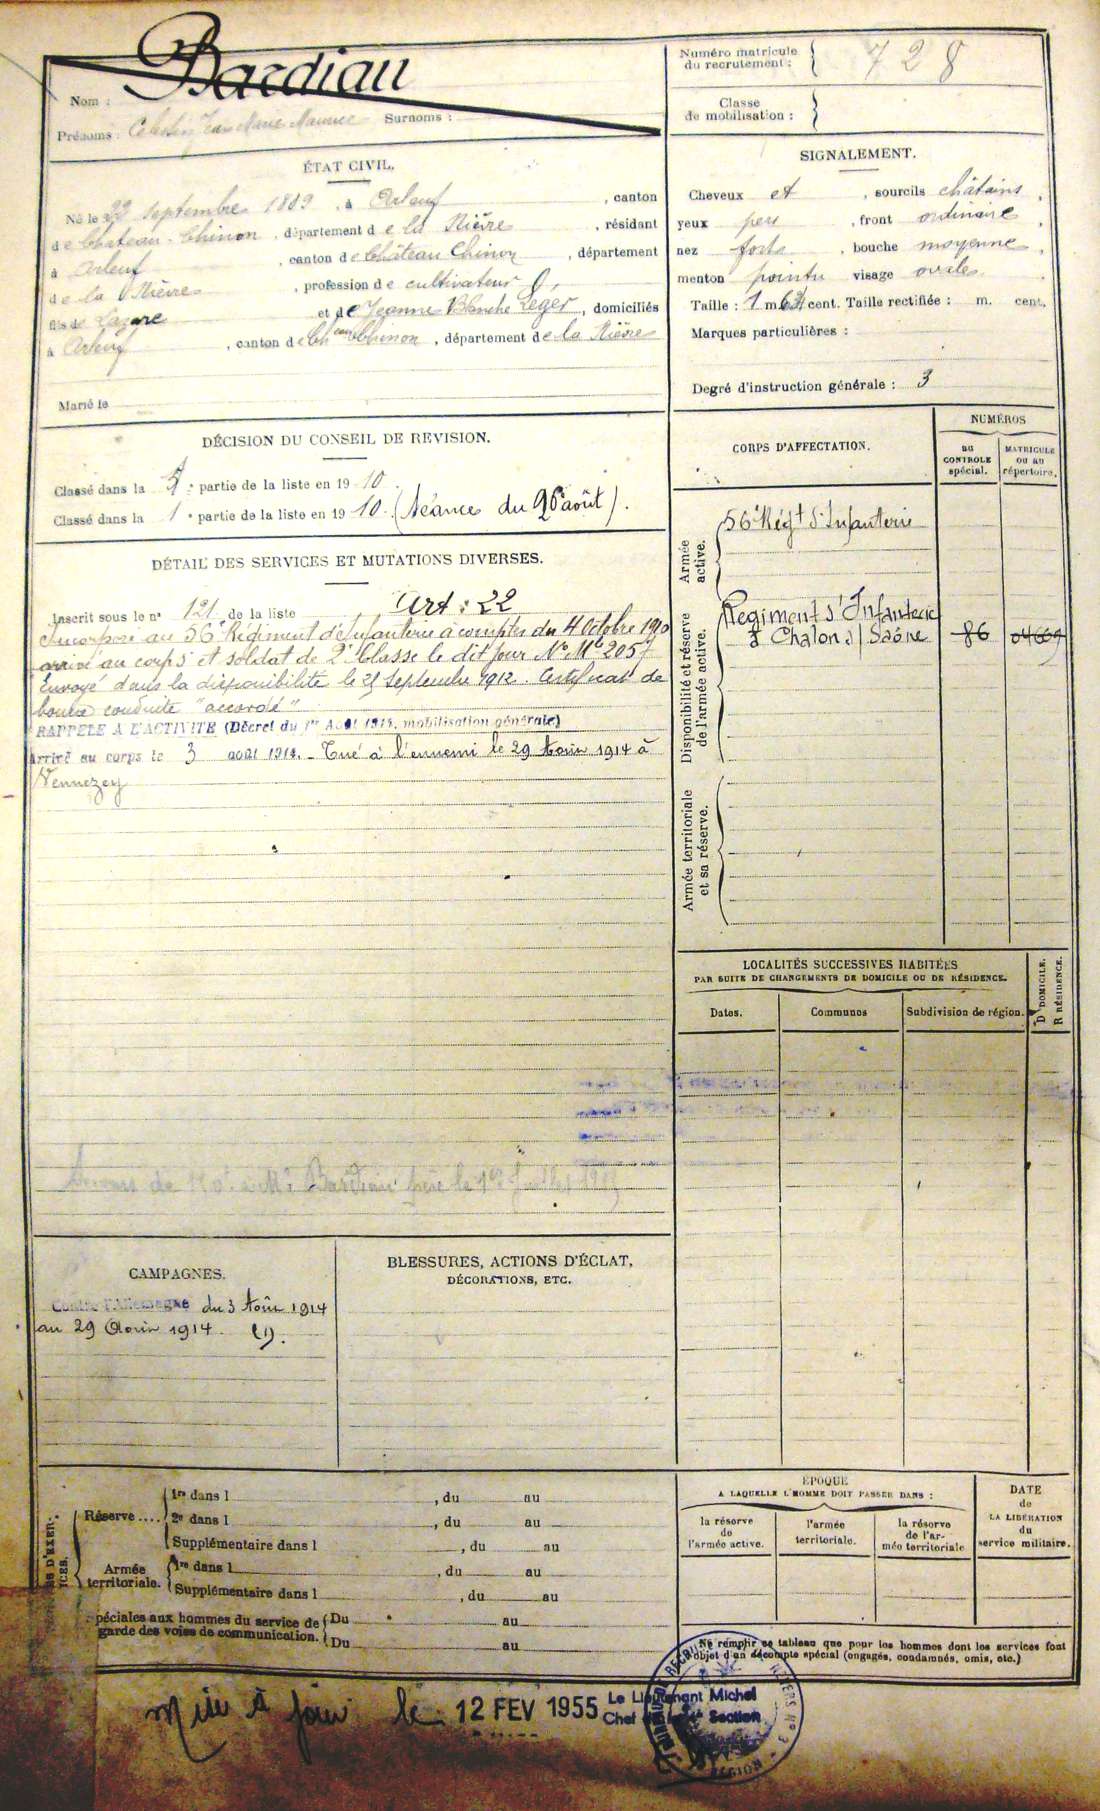 Nom : Bardiau
Prénoms : Célestin Jean Marie Maurice Surnoms :
Numéro matricule
du recrutement : 728
Classe
de mobilisation :
ÉTAT CIVIL.
Né le 22 septembre 1889, à Arleuf, canton
de Château-Chinon, département de la Nièvre, résidant
à Arleuf, canton de Château Chinon, département
de la Nièvre, profession de cultivateur
fils de Lazare et de Jeanne Blanche Léger, domiciliés
à Arleuf, canton de Ch eau Chinon, département de la Nièvre
Marié le
SIGNALEMENT.
Cheveux et, sourcils châtains,
yeux pers, front ordinaire,
nez fort, bouche moyenne,
menton pointu visage ovale.
Taille : 1 m 63 cent. Taille rectifiée : m. cent.
Marques particulières :
Degré d'instruction générale : 3
DÉCISION DU CONSEIL DE REVISION.
Classé dans la 5e partie de la liste en 1910.
Classé dans la 1e partie de la liste en 1910. (Séance du 26 août).
DÉTAIL DES SERVICES ET MUTATIONS DIVERSES.
Inscrit sous le n° 121 de la liste Art : 22
Incorporé au 56e Régiment d'Infanterie à compter du 4 Octobre 1910
arrivé au corps et soldat de 2e Classe le dit jour N° Mle 2057
Envoyé dans la disponibilité le 25 Septembre 1912. Certificat de
bonne conduite "accordé"
RAPPELÉ A L'ACTIVITÉ (Décret du 1er Août 1914, mobilisation générale)
Arrivé au corps le 3 août 1914. - Tué à l'ennemi le 29 Août 1914 à
Vennezey
Secours de 150f à Mr Bardiau père le 1er Juillet
CORPS D'AFFECTATION.
NUMÉROS
au
CONTROLE
spécial.
MATRICULE
OU AU
répertoire.
Armée
active.
56e Régt d'Infanterie
Disponibilité et réserve
de l'armée active.
Régiment d'Infanterie
d Chalon s/ Saône 86 04669
Armée territoriale
et sa réserve.
LOCALITÉS SUCCESSIVES HABITÉES
PAR SUITE DE CHANGEMENTS DE DOMICILE OU DE RÉSIDENCE.
Dates.
Communes
Subdivision de région.
D DOMICILE.
R RÉSIDENCE.
CAMPAGNES.
Contre l'Allemagne du 3 Août 1914
au 29 Août 1914. (1).
BLESSURES, ACTIONS D'ÉCLAT,
DÉCORATIONS, ETC.
Réserve....
1re dans l , du au
2e dans l , du au
Supplémentaire dans l , du au
Armée
territoriale.
1re dans l , du au
Supplémentaire dans l , du au
péciales aux hommes du service de
garde des voies de communication.
Du au
Du au
ÉPOQUE
A LAQUELLE L'HOMME DOIT PASSER DANS :
la réserve
de
l'armée active.
l'armée
territoriale.
la réserve
de l'ar-
mée territoriale
DATE
de
LA LIBÉRATION
du
service militaire.
Ne remplir ce tableau que pour les hommes dont les services font
l'objet d'un décompte spécial (engagés, condamnés, omis, etc.)
Mise à jour le 12 FEV 1955
Le Lieutenant Michel
Chef de la 4e Section